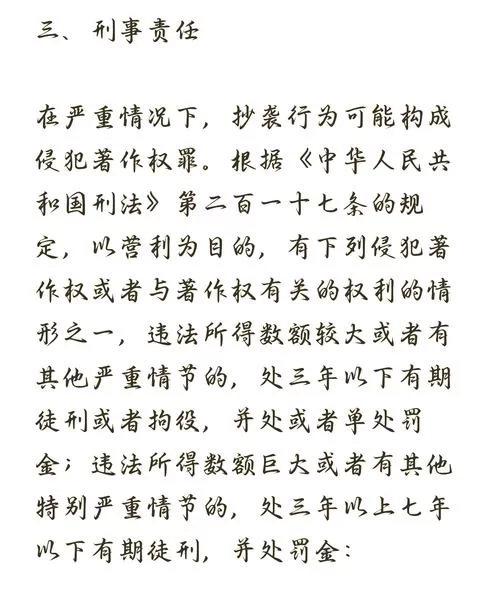 三、刑事责任
在严重情况下，抄袭行为可能构成
侵犯著作权罪。根据《中华人民共
和国刑法》第二百一十七条的规
定，以营利为目的，有下列侵犯著
作权或者与著作权有关的权利的情
形之一，违法所得数额较大或者有
其他严重情节的，处三年以下有期
徒刑或者拘役，并处或者单处罚
金；违法所得数额巨大或者有其他
特别严重情节的，处三年以上七年
以下有期徒刑，并处罚金：